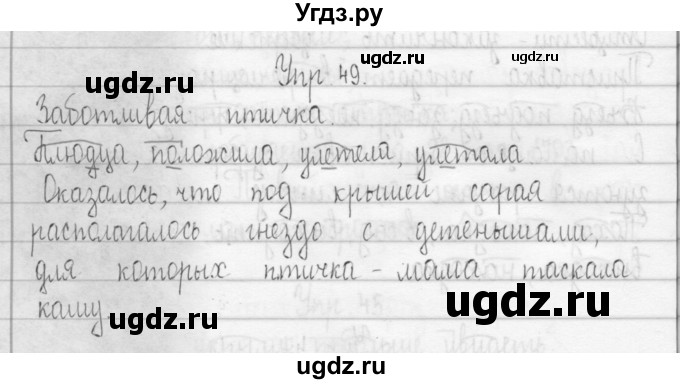 Угдз.ру
ugdz.ru ugdz.ru
Упр 49.
Заботливая птичка
ugdz.ru
Плюдца, положила, улетела, улетала
ugdz.ru ugdz.ru
Оказалось, что под крышей сарая
располагалось гнездо с детенышами,
для которых птичка - мама таскала
кашу
ugdz.ru ugdz.ru
ugdz.ru